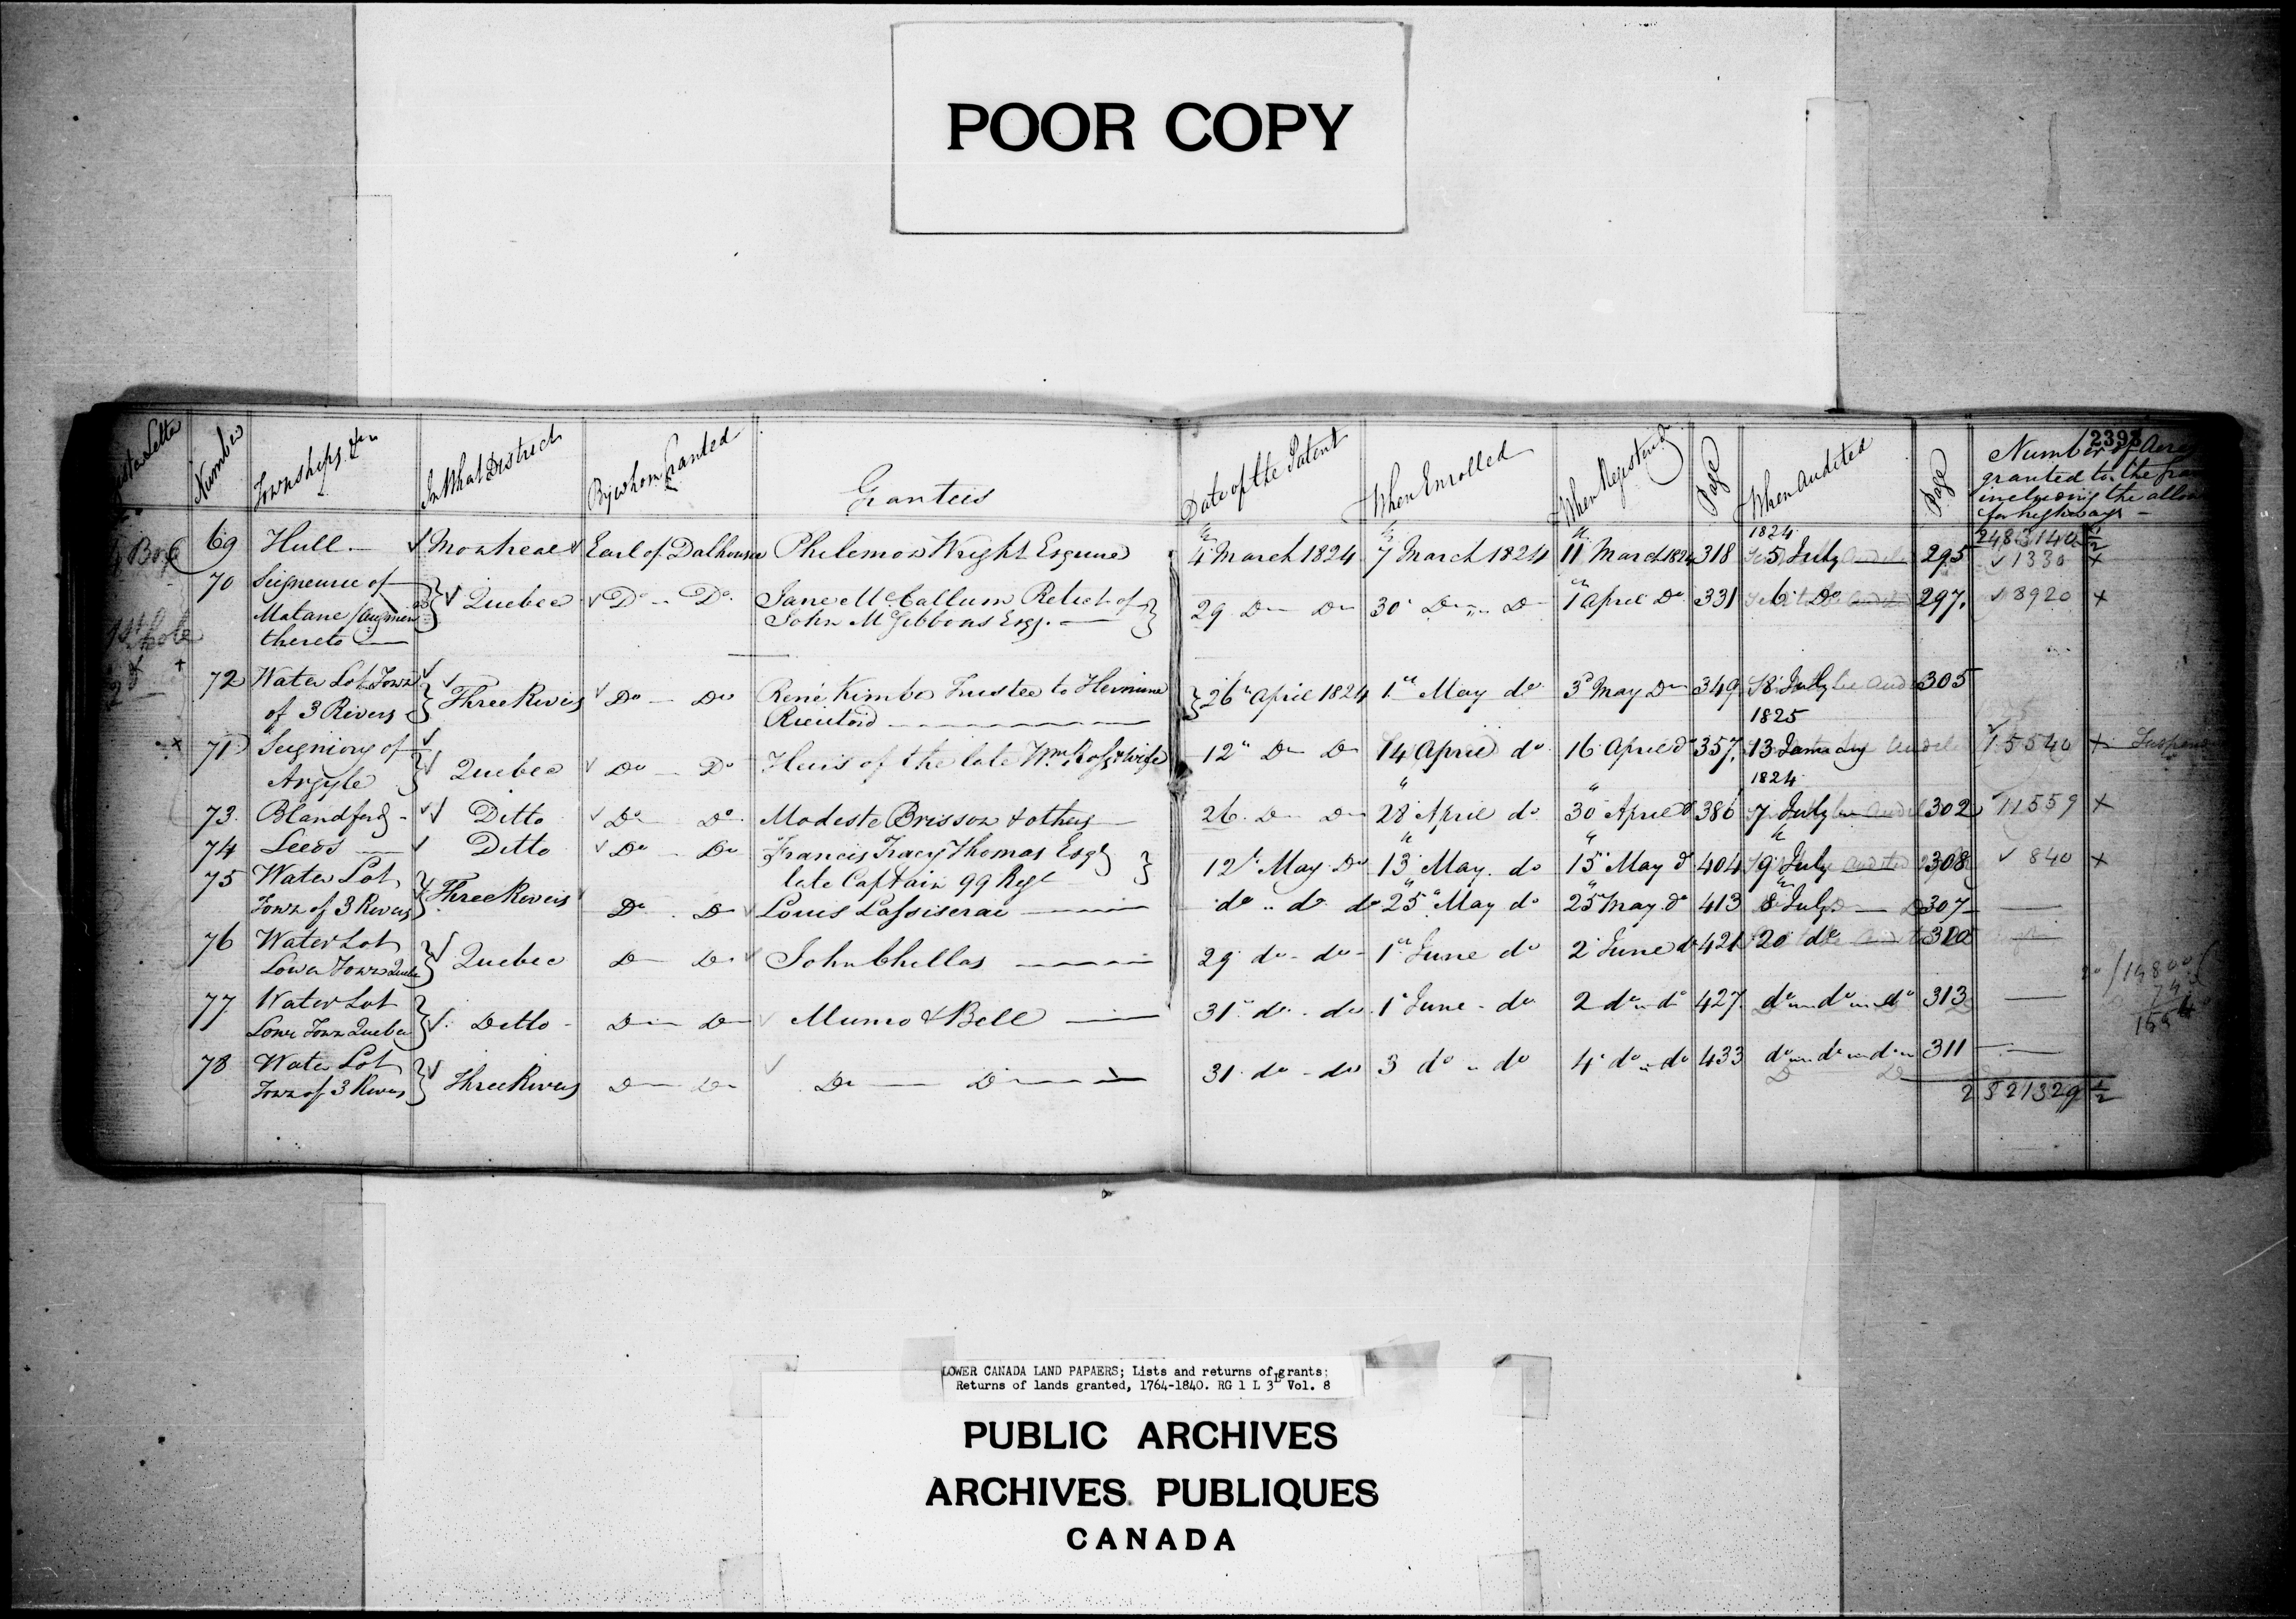 POOR COPY
Number
Townships &c
In What District
By whom Granted
Grantees
Date of the Patent
When Enrolled
When Registered
Page
When Audited
Page
2393
Number of Acres
granted to the
including the
for highways
2483140 1/2
69 Hull Montreal Earl of Dalhousie Philemon Wright Esquire 4 March 1824 7 March 1824 11 March 1824 318 1824 5 July 295 1330 x
70 Seigneurie of
Matane / Augmen
thereto Quebec Do Do Jane McCallum Relict of
John McGibbons Esqr. 29 Do Do 30 Do Do 1 April Do 331 6 Do 297 8920 x
72 Water Lot Town
of 3 Rivers Three Rivers Do Do René Kimber Trustee to
26 April 1824 1st May do 3d May Do 349 8 July 305
71 Seigniory of
Argyle Quebec Do Do Heirs of the late Wm Ross & wife 12 Do Do 14 April do 16 April do 357 1825 13 January 15540 x
73 Blandford Ditto Do Do Modeste Brisson & others 26 Do Do 28 April do 30 April do 386 1824 7 July 302 11559 x
74 Leeds Ditto Do Do Francis Tracy Thomas Esqr
late Captain 99 Regt 12 May Do 13 May do 15 May do 404 9 July 308 840 x
75 Water Lot
Town of 3 Rivers Three Rivers Do Do Louis do do do 25 May do 25 May do 413 8 July 307
76 Water Lot
Lower Town Quebec Quebec Do Do John Chillas 29 do do 1st June do 2 June do 421 20 do
77 Water Lot
Lower Town Quebec Ditto Do Do Munro & Bell 31 do do 1 June do 2 do do 427 do do do 313
78 Water Lot
Town of 3 Rivers Three Rivers Do Do Do Do 31 do do 3 do do 4 do do 433 do do do 311
2521329 1/2
LOWER CANADA LAND PAPAERS; Lists and returns of grants;
Returns of lands granted, 1764-1840. RG 1 L 3L Vol. 8
PUBLIC ARCHIVES
ARCHIVES PUBLIQUES
CANADA